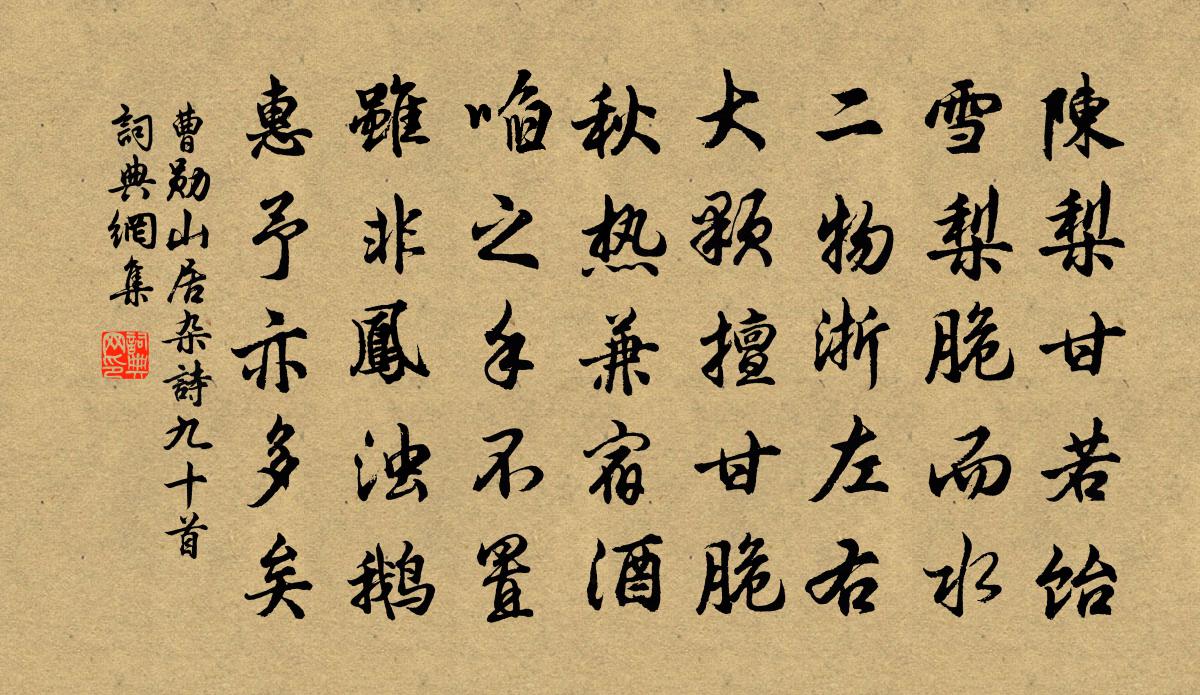 陳梨甘若飴
雪梨脆而水
二物浙左右
大顆擅甘脆
秋热兼宿酒
啗之手不置
雖非鳳浊鹅
惠予亦多矣
曹勛山居杂詩九十首
詞典網集
詞典网印